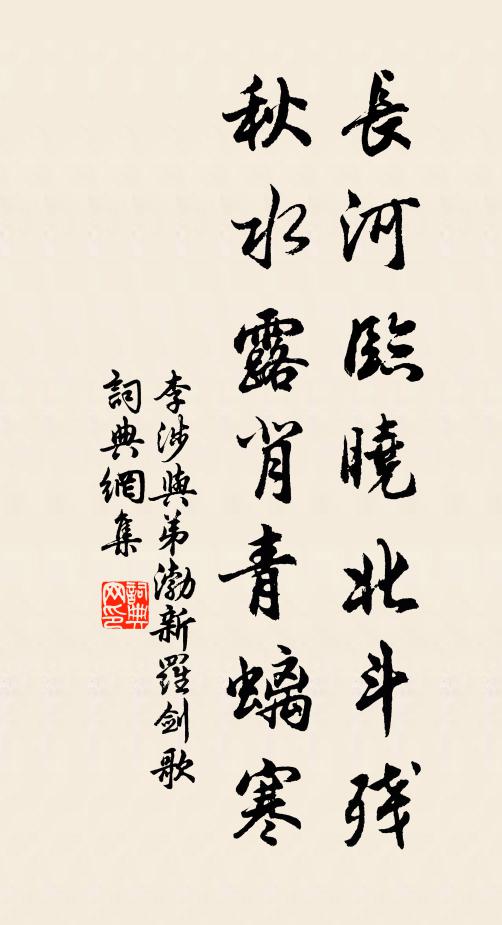 長河臨曉北斗殘
秋水露背青螭寒
李涉與弟渤新羅劍歌
詞典網集
詞典網印